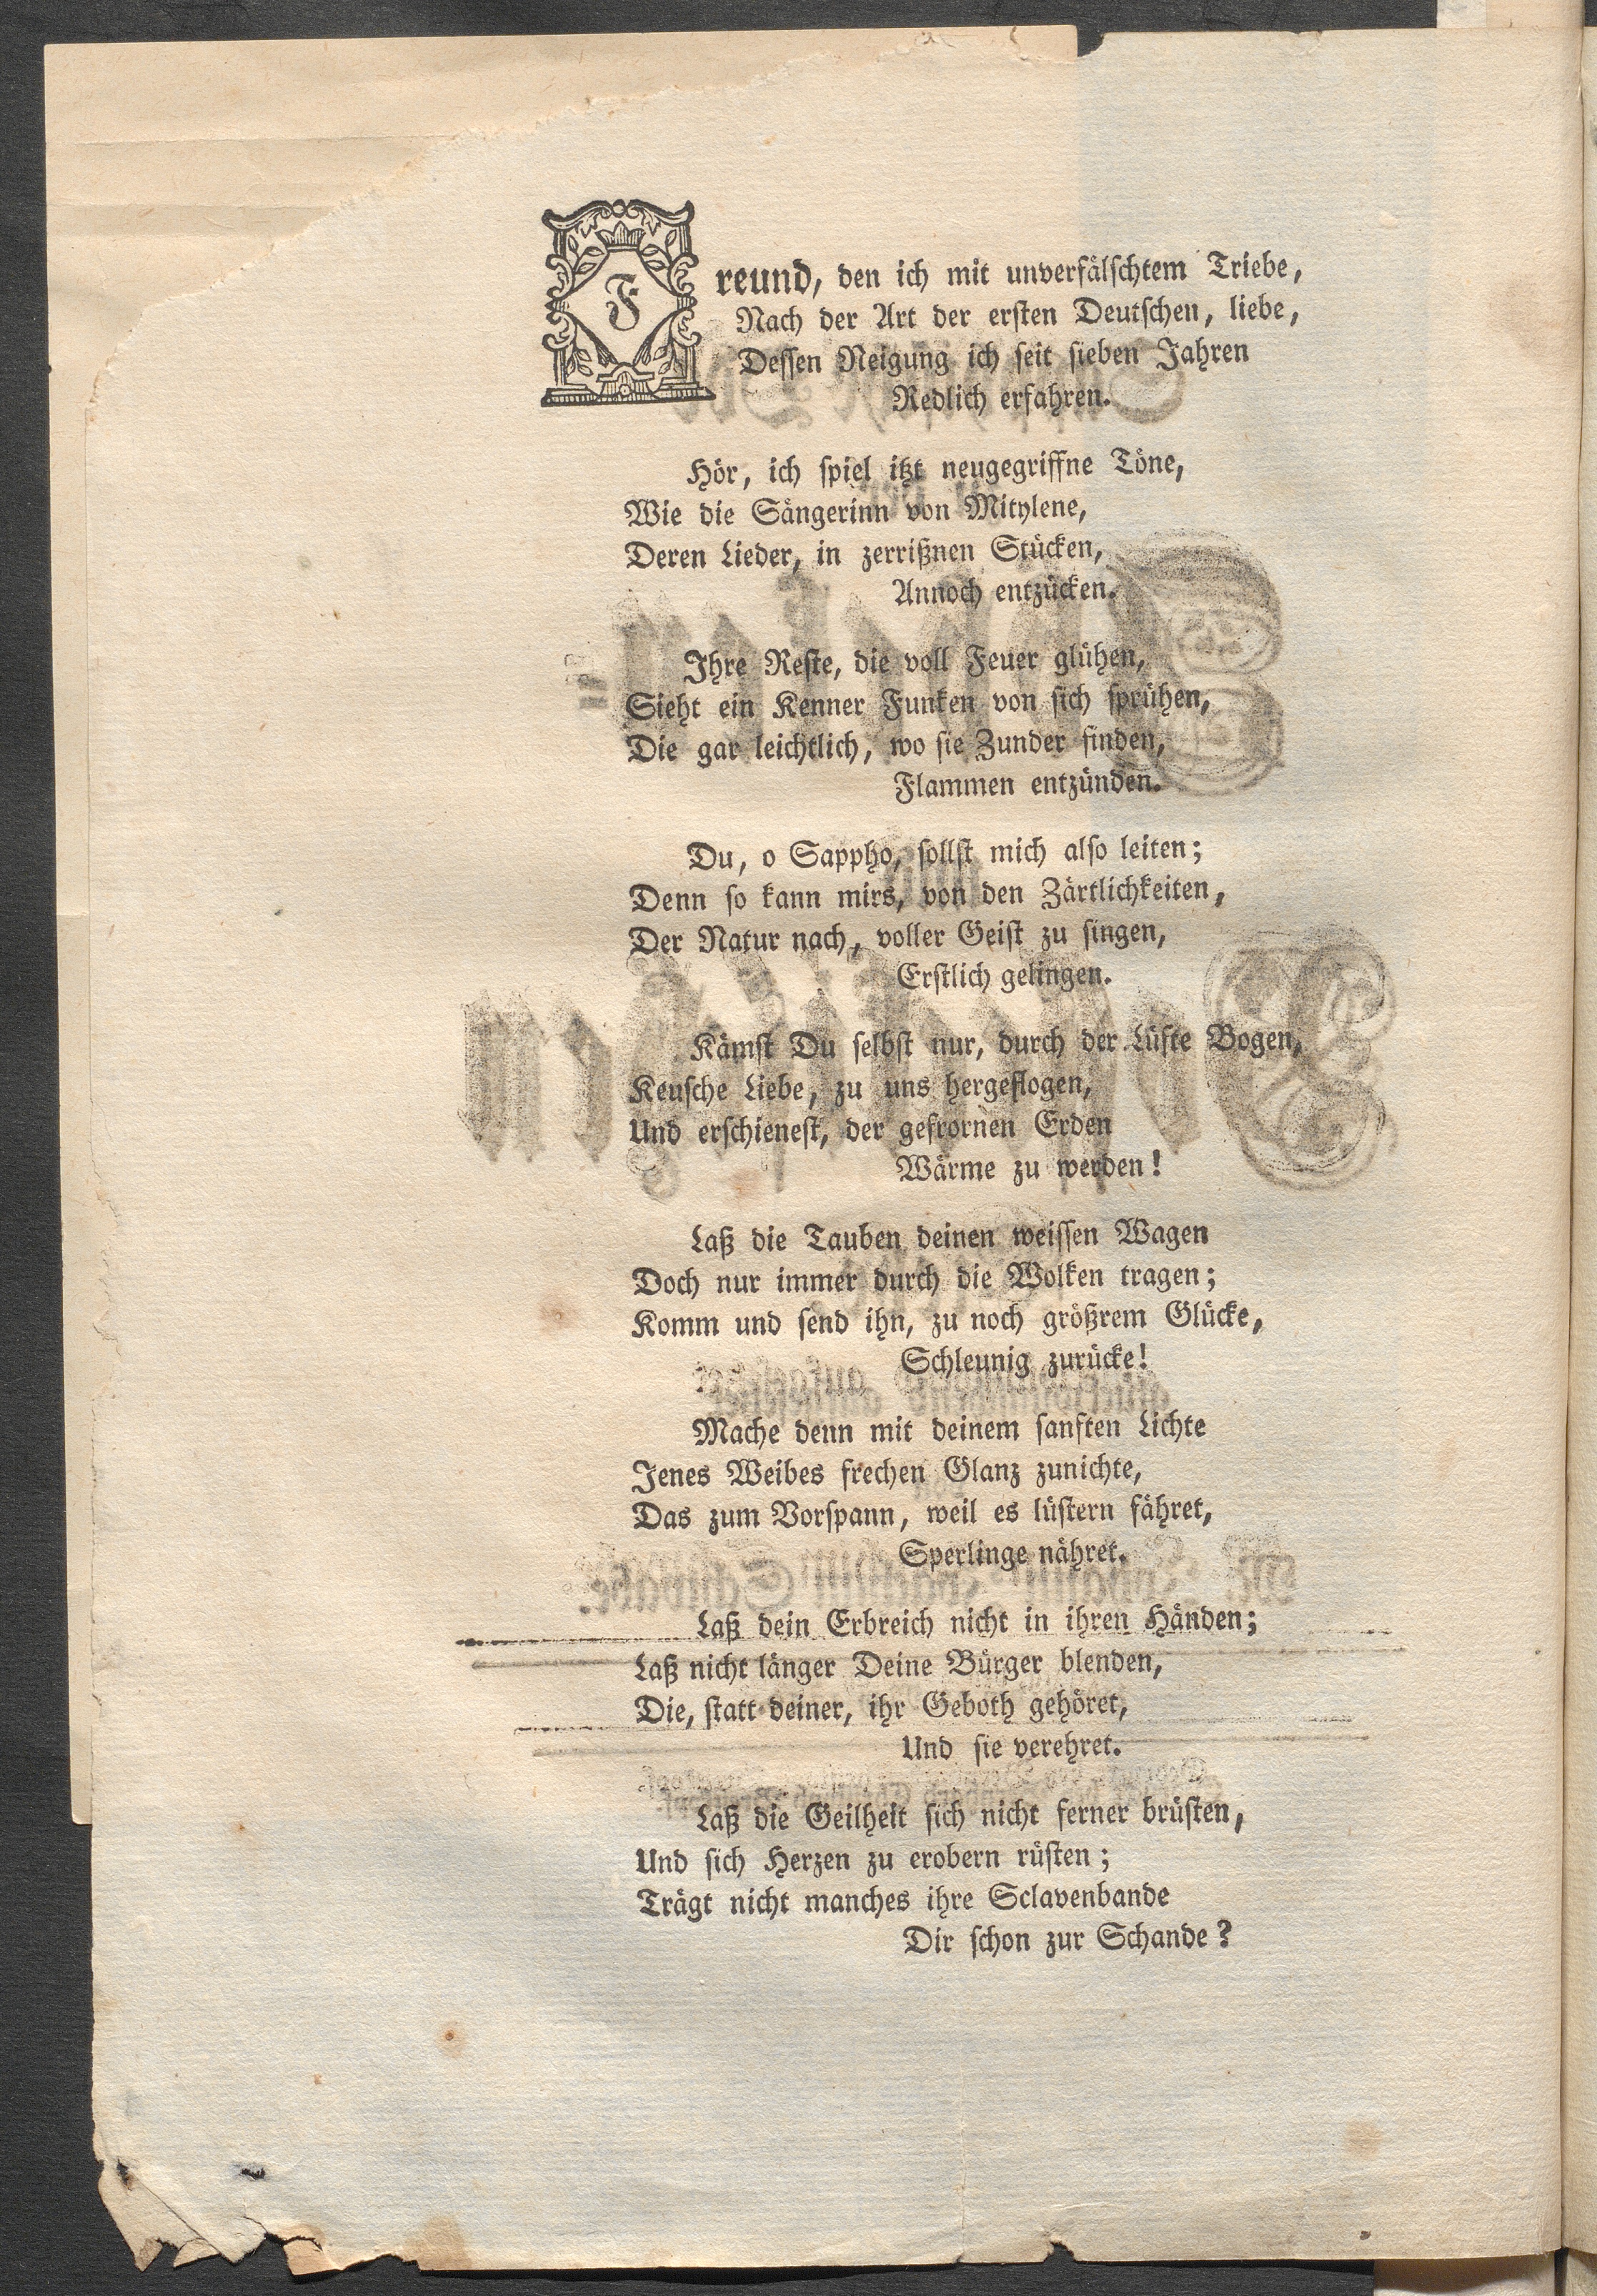 Freund, den ich mit unverfälschtem Triebe,
Nach der Art der ersten Deutschen, liebe,
Dessen Neigung ich seit sieben Jahren
Redlich erfahren.
Hör, ich spiel itzt neugegriffne Töne,
Wie die Sängerinn von Mitylene,
Deren Lieder, in zerrißnen Stücken,
Annoch entzücken.
Ihre Reste, die voll Feuer glühen,
Sieht ein Kenner Funken von sich sprühen,
Die gar leichtlich, wo sie Zunder finden,
Flammen entzünden.
Du, o Sappho, sollst mich also leiten;
Denn so kann mirs, von den Zärtlichkeiten,
Der Natur nach, voller Geist zu singen,
Erstlich gelingen.
Kämst Du selbst nur, durch der Lüfte Bogen,
Keusche Liebe, zu uns hergeflogen,
Und erschienest, der gefrornen Erden
Wärme zu werden!
Laß die Tauben deinen weissen Wagen
Doch nur immer durch die Wolken tragen;
Komm und send ihn, zu noch größrem Glücke,
Schleunig zurücke!
Mache denn mit deinem sanften Lichte
Jenes Weibes frechen Glanz zunichte,
Das zum Vorspann, weil es lüstern fähret,
Sperlinge nähret.
Laß dein Erbreich nicht in ihren Händen;
Laß nicht länger Deine Bürger blenden,
Die, statt deiner, ihr Geboth gehöret,
Und sie verehret.
Laß die Geilheit sich nicht ferner brüsten,
Und sich Herzen zu erobern rüsten;
Trägt nicht manches ihre Sclavenbande
Dir schon zur Schande?